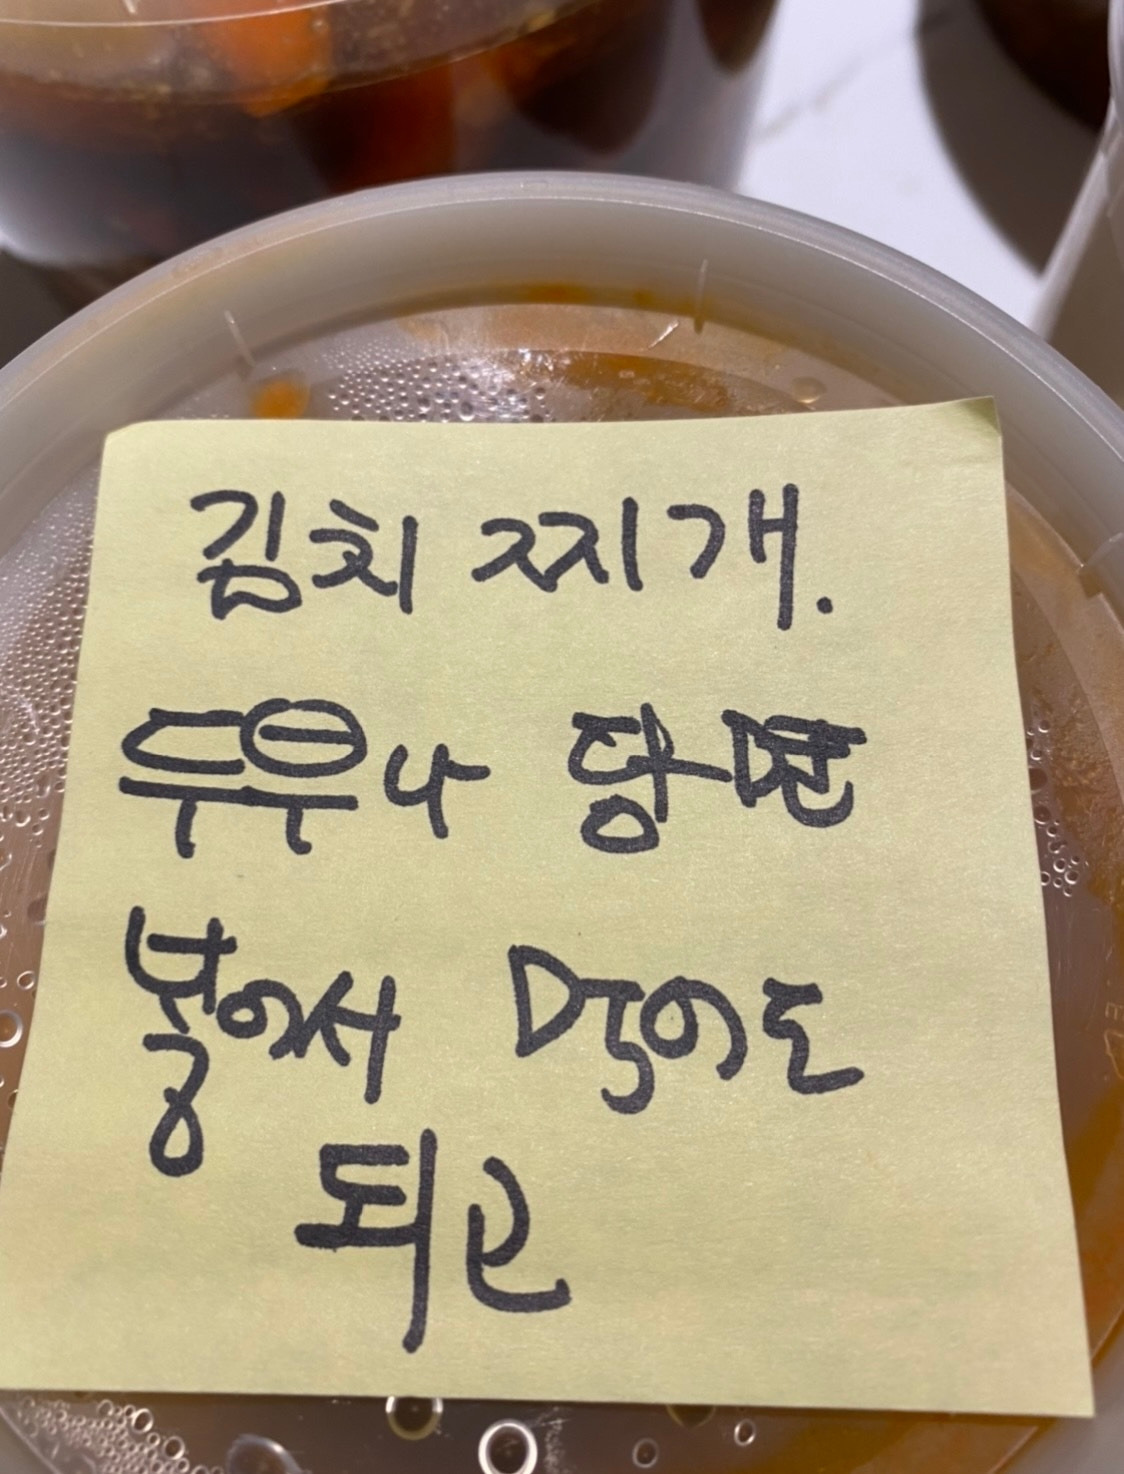 김치 찌개.
두유나 당면
넣어서 먹어도
되고